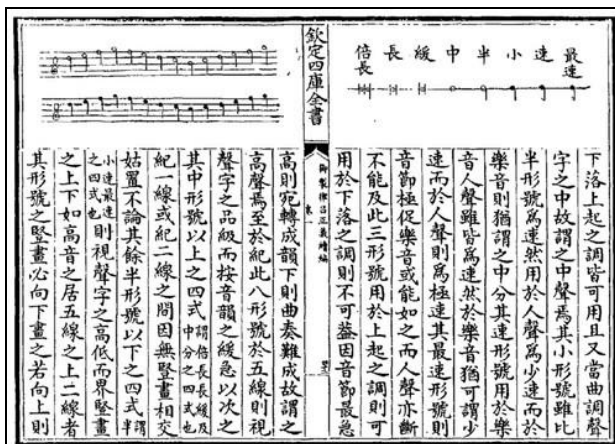 最速
速
小
半
中
緩
長
倍長
下落上起之調皆可用且又當曲調聲
字之中故謂之中聲焉其小形號雖比
半形號為速然用於人聲為少速而於
樂音則猶謂之中分其速形號用於樂
音人聲雖皆為速然於樂音猶可謂少
速而於人聲則為極速其最速形號則
音節極促樂音或能如之而人聲亦斷
不能及此三形號用於上起之調則可
用於下落之調則不可葢因音節最急
欽定四庫全書
御製律呂正義續編
卷一
高則宛轉成韻下則曲奏難成故謂之
高聲焉至於紀此八形號於五線則視
聲字之品級而按音韻之緩急以次之
其中形號以上之四式謂倍長長緩及中分之四式也
紀一線或紀二線之間因無竪畫相交
姑置不論其餘半形號以下之四式半小速最速之四式也
則視聲字之高低而界竪畫
之上下如高音之居五線之上二線者
其形號之竪畫必向下畫之若向上則